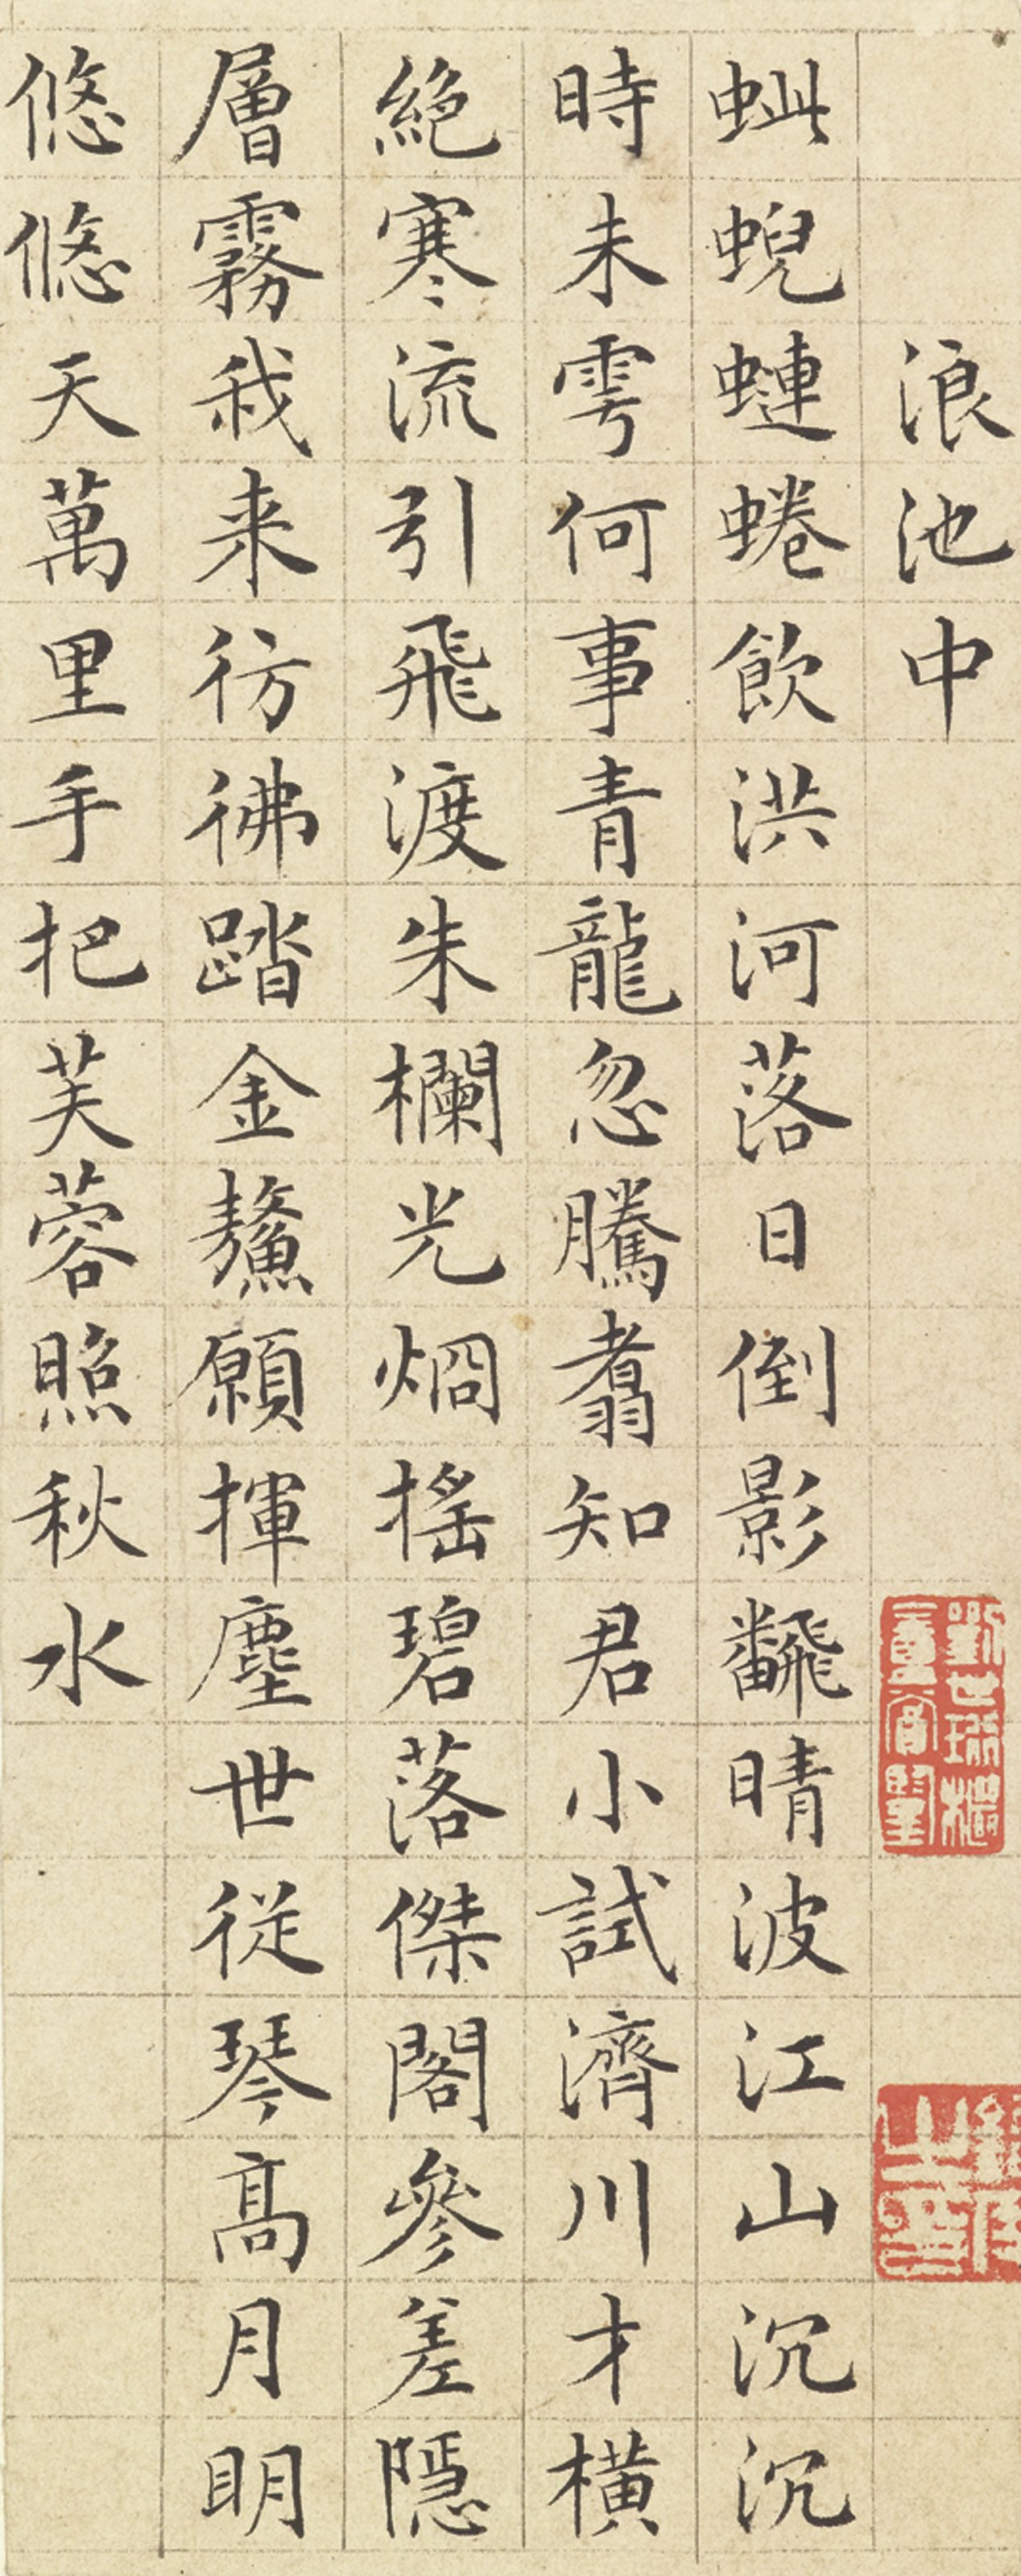 浪池中
蚍蜺蜨蜷飲洪河落日倒影飜晴波江山沉沉
時未雩何事青龍忽騰翥知君小試濟川才橫
絶寒流引飛渡朱欄光烱搖碧落傑閣參差隱
層霧我来彷彿踏金鼇願揮塵世從琴高月明
悠悠天萬里手把芙蓉照秋水